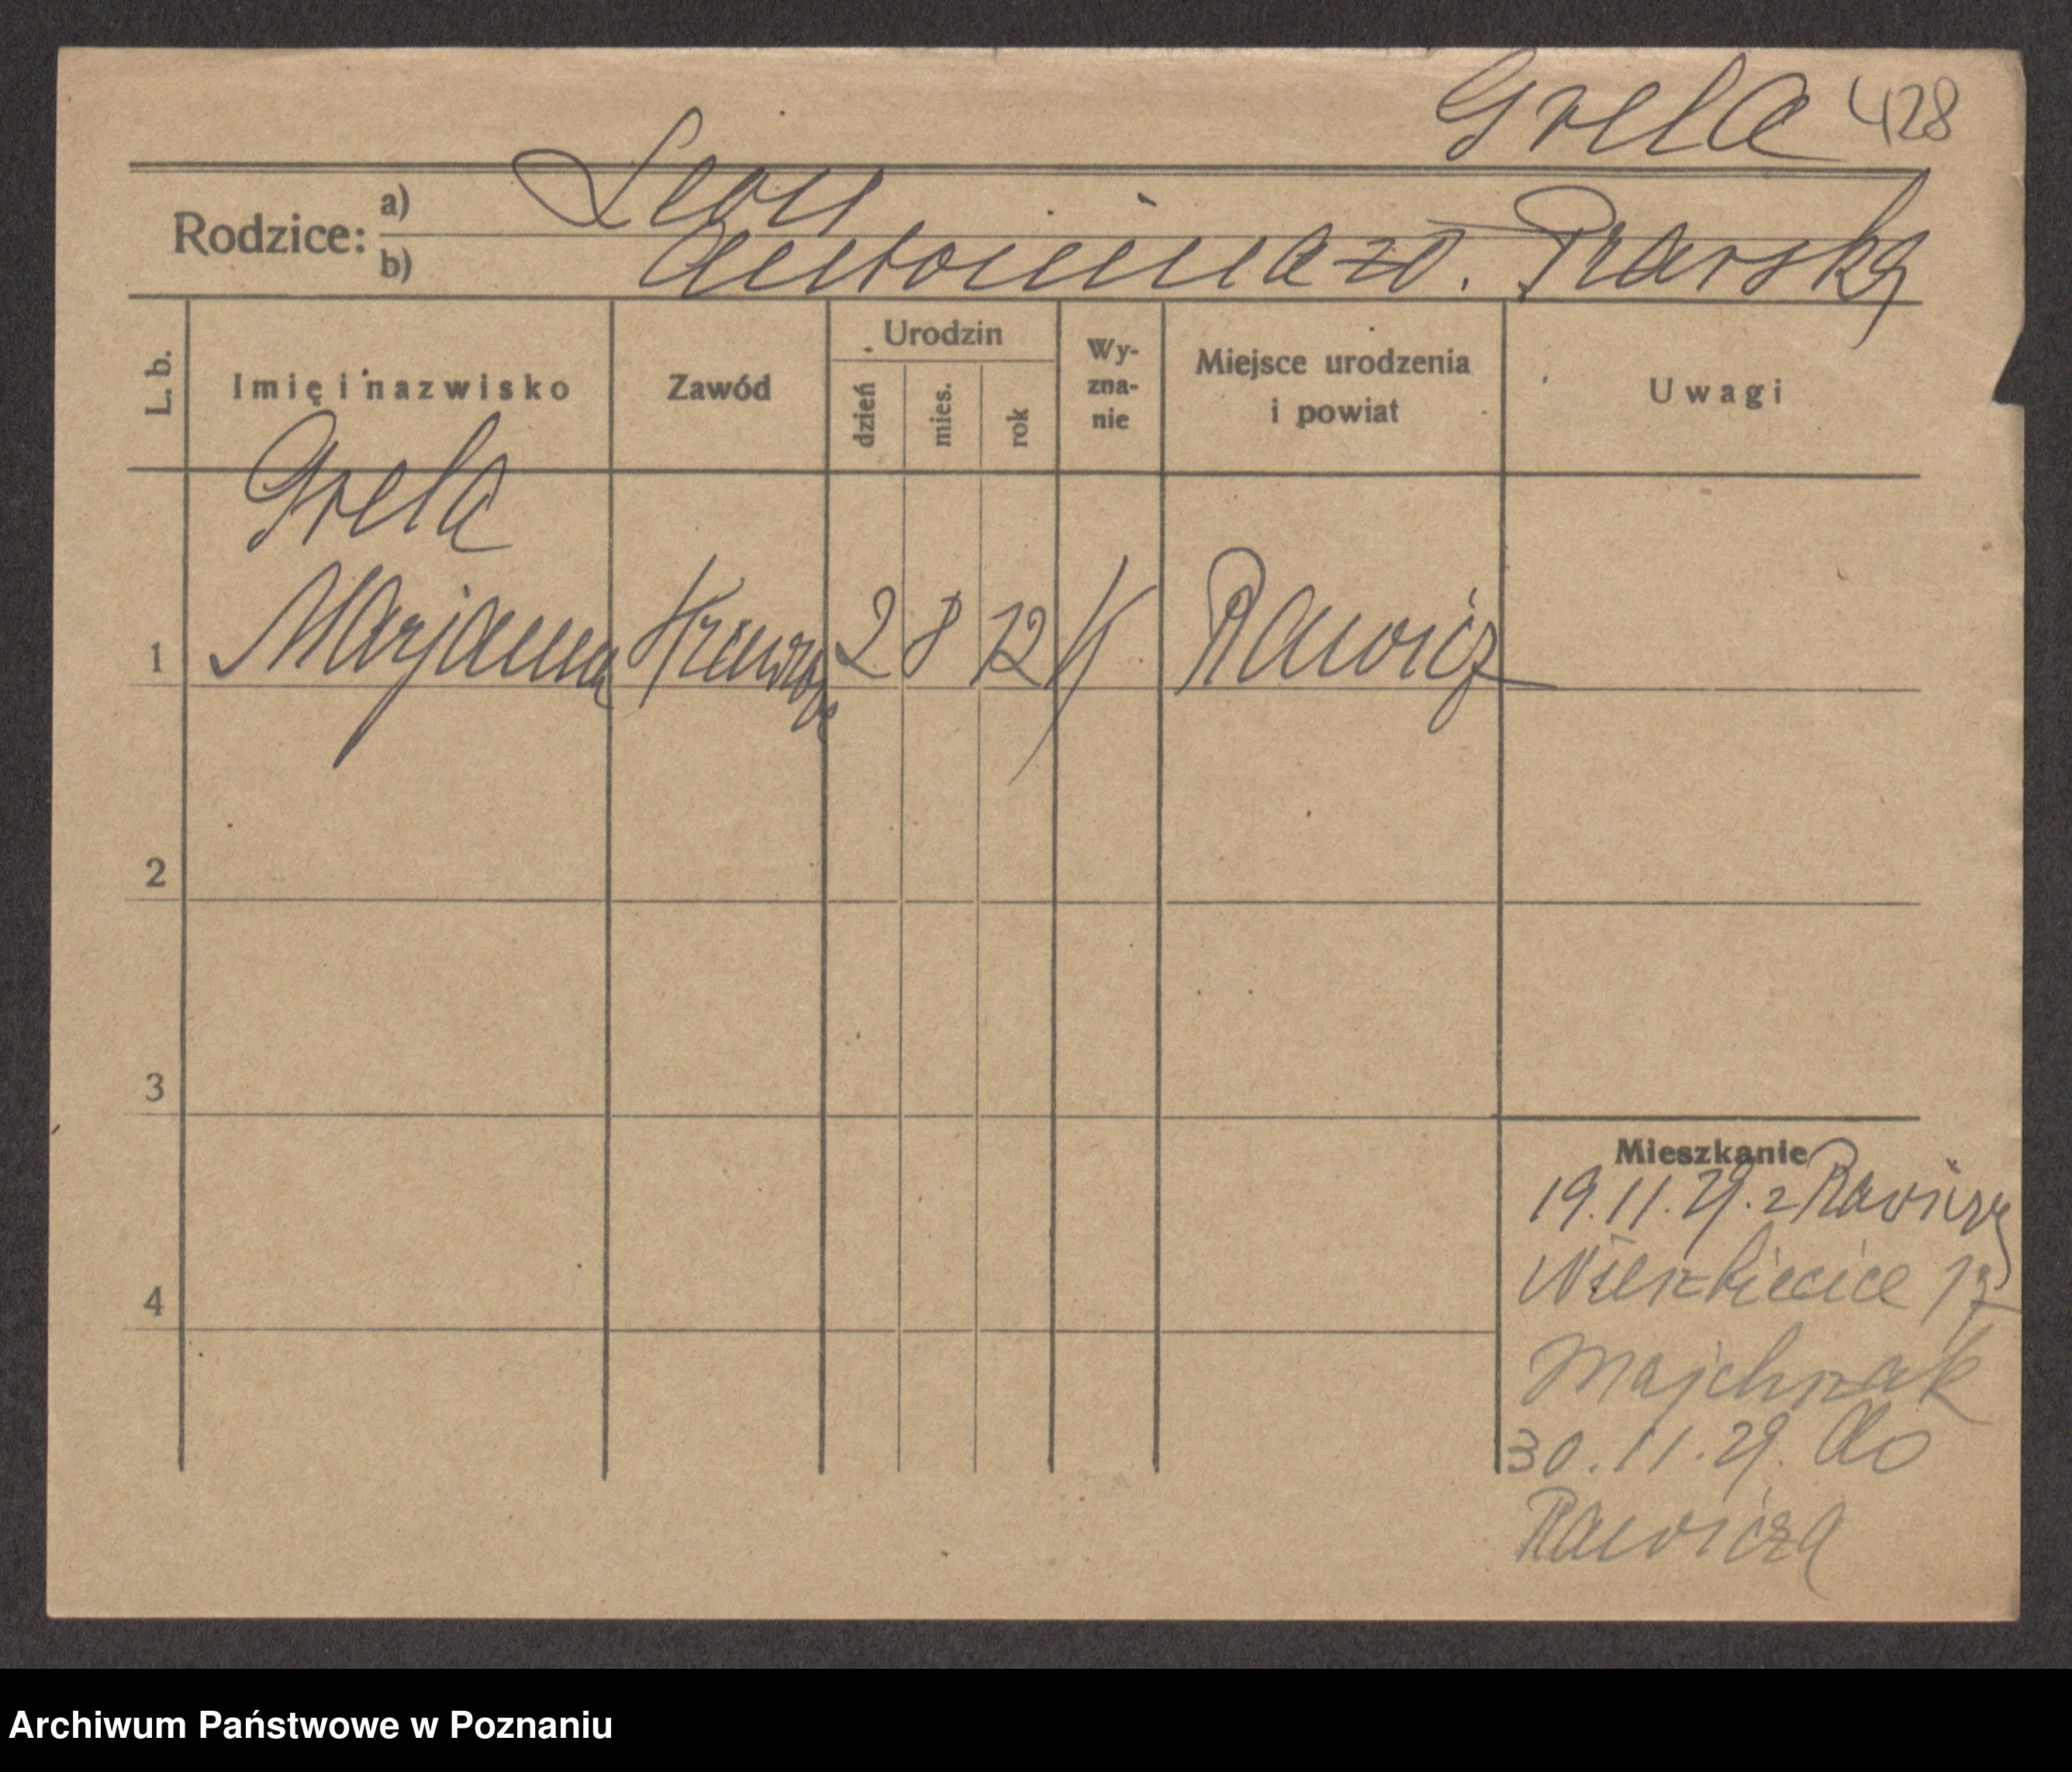 Grela 428
Rodzice: a) Leon
b) Antonina zd. Prarska
L. b. Imię i nazwisko Zawód Urodzin dzień mies. rok Wy-zna-nie Miejsce urodzenia i powiat Uwagi
Grela
1 Marjanna 2 8 12 K Rawicz
2
3
Mieszkanie
19.11.29. z Rawicza
4
Majchrzak
30.11.29. do
Rawicza
Archiwum Państwowe w Poznaniu